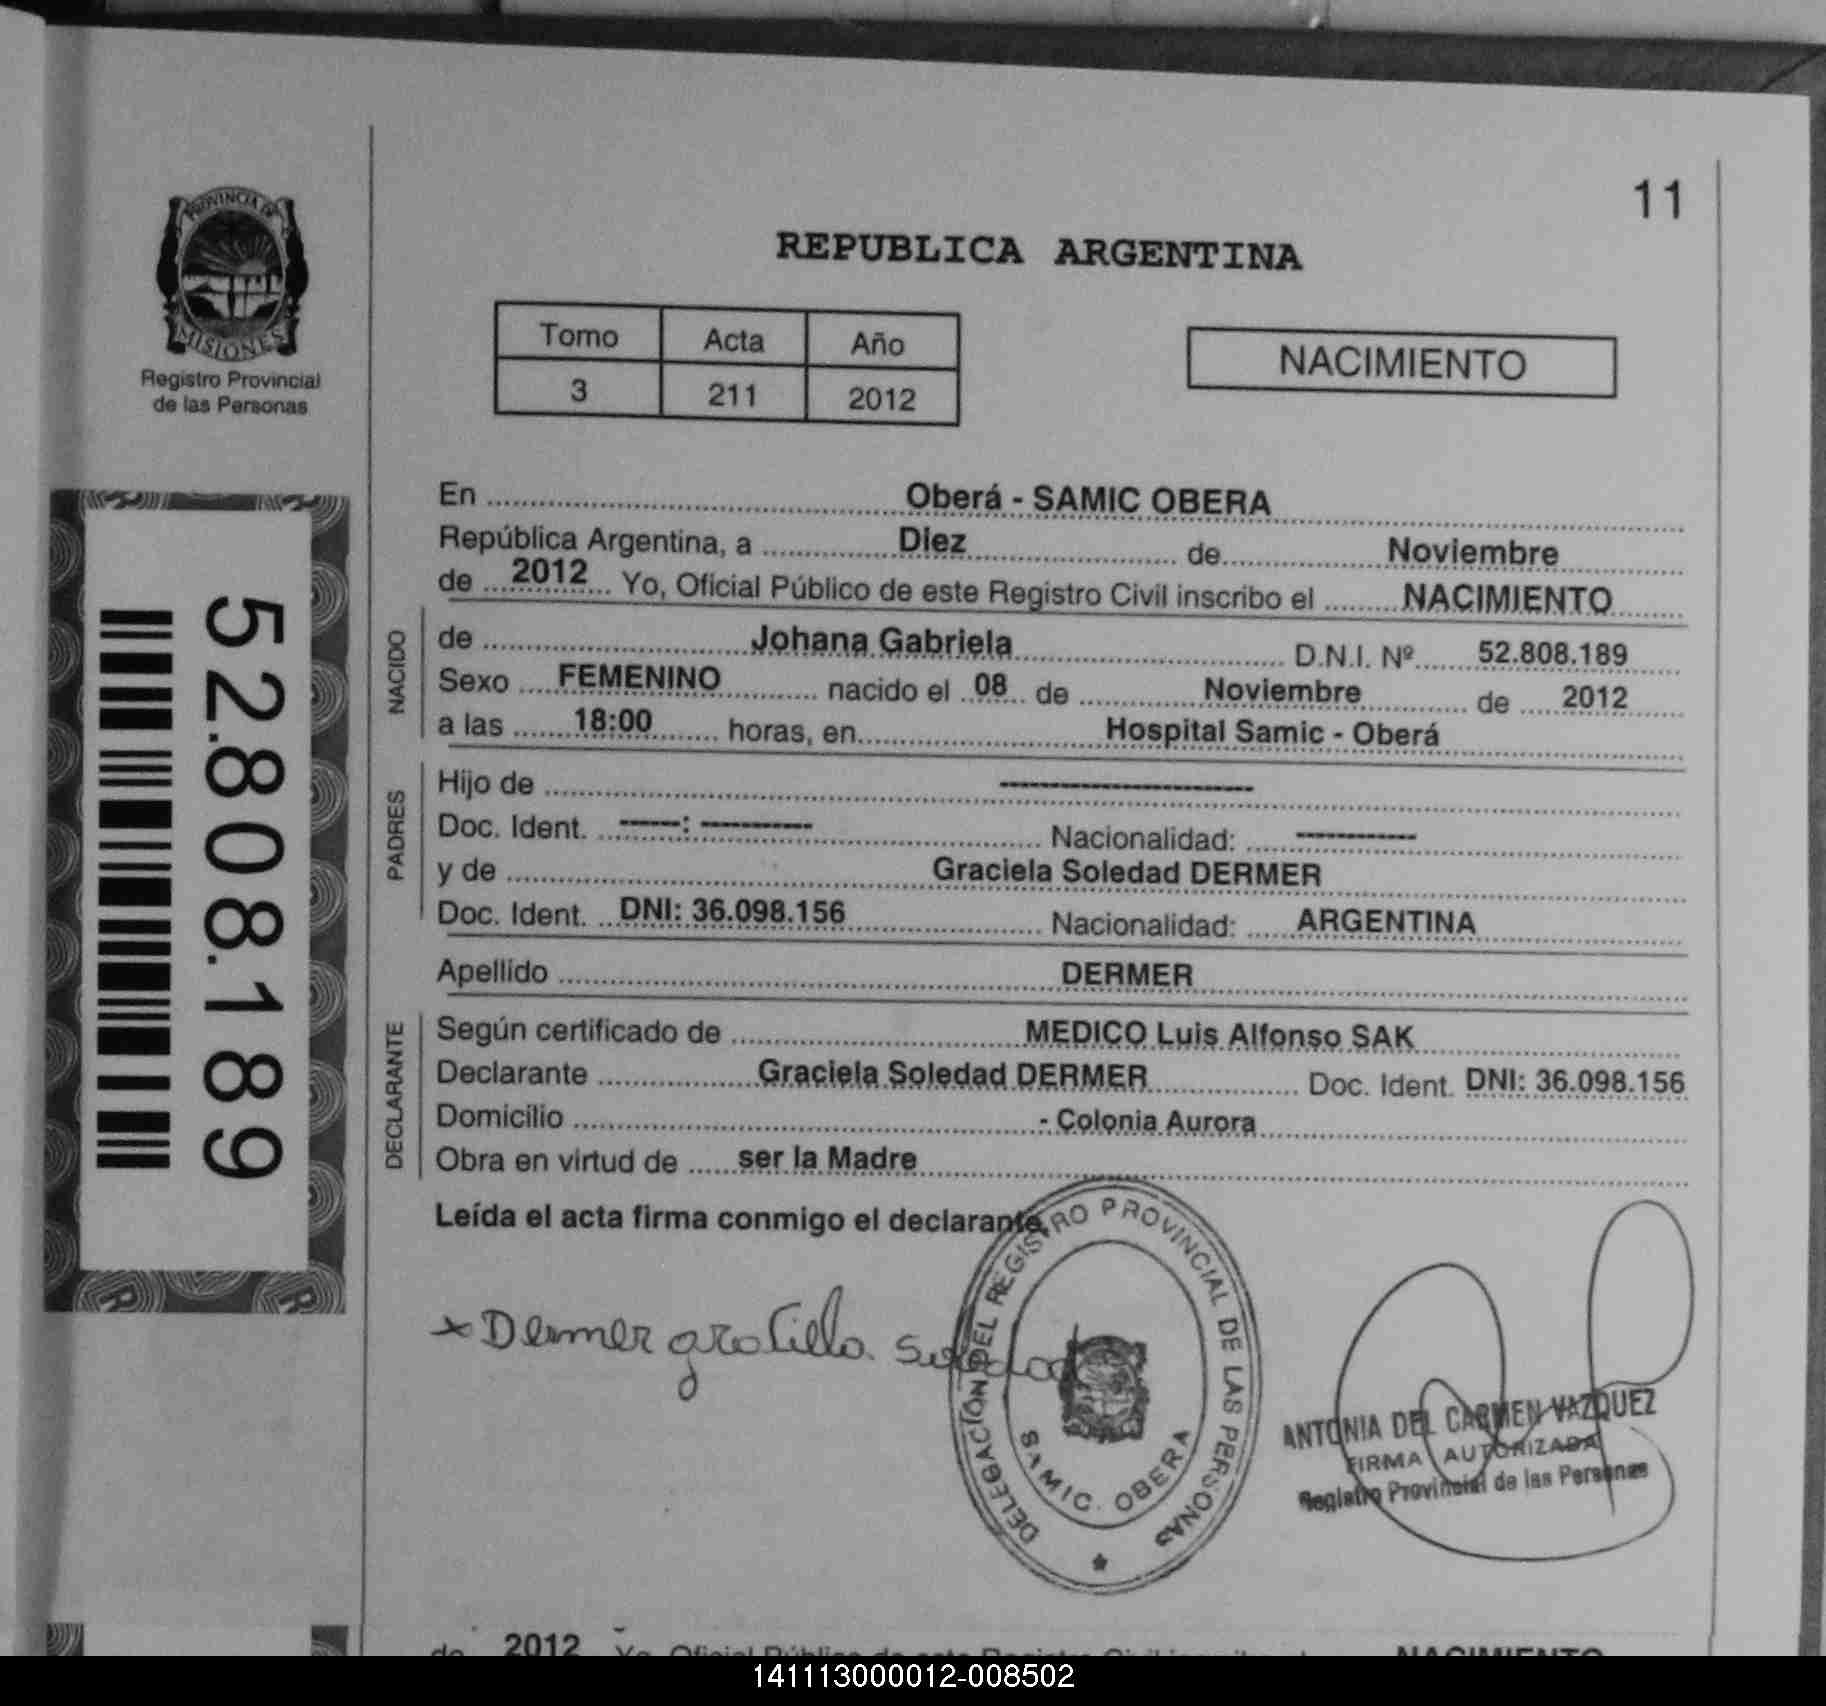 11
PROVINCIA DE
MISIONES
Registro Provincial
de las Personas
REPUBLICA ARGENTINA
Tomo Acta Año
3 211 2012
NACIMIENTO
52.808.189
En Oberá - SAMIC OBERA
República Argentina, a Diez de Noviembre
de 2012 Yo, Oficial Público de este Registro Civil inscribo el NACIMIENTO
NACIDO
de Johana Gabriela D.N.I. Nº 52.808.189
Sexo FEMENINO nacido el 08 de Noviembre de 2012
a las 18:00 horas, en Hospital Samic - Oberá
PADRES
Hijo de -----------------------
Doc. Ident. ------: ---------- Nacionalidad: -----------
y de Graciela Soledad DERMER
Doc. Ident. DNI: 36.098.156 Nacionalidad: ARGENTINA
Apellido DERMER
DECLARANTE
Según certificado de MEDICO Luis Alfonso SAK
Declarante Graciela Soledad DERMER Doc. Ident. DNI: 36.098.156
Domicilio - Colonia Aurora
Obra en virtud de ser la Madre
Leída el acta firma conmigo el declarante.
x Dermer graciela soledad
DELEGACION DEL REGISTRO PROVINCIAL DE LAS PERSONAS
SAMIC. OBERA
ANTONIA DEL CARMEN VAZQUEZ
FIRMA AUTORIZADA
Registro Provincial de las Personas
de 2012 Yo, Oficial Público de este Registro Civil inscribo el NACIMIENTO
141113000012-008502